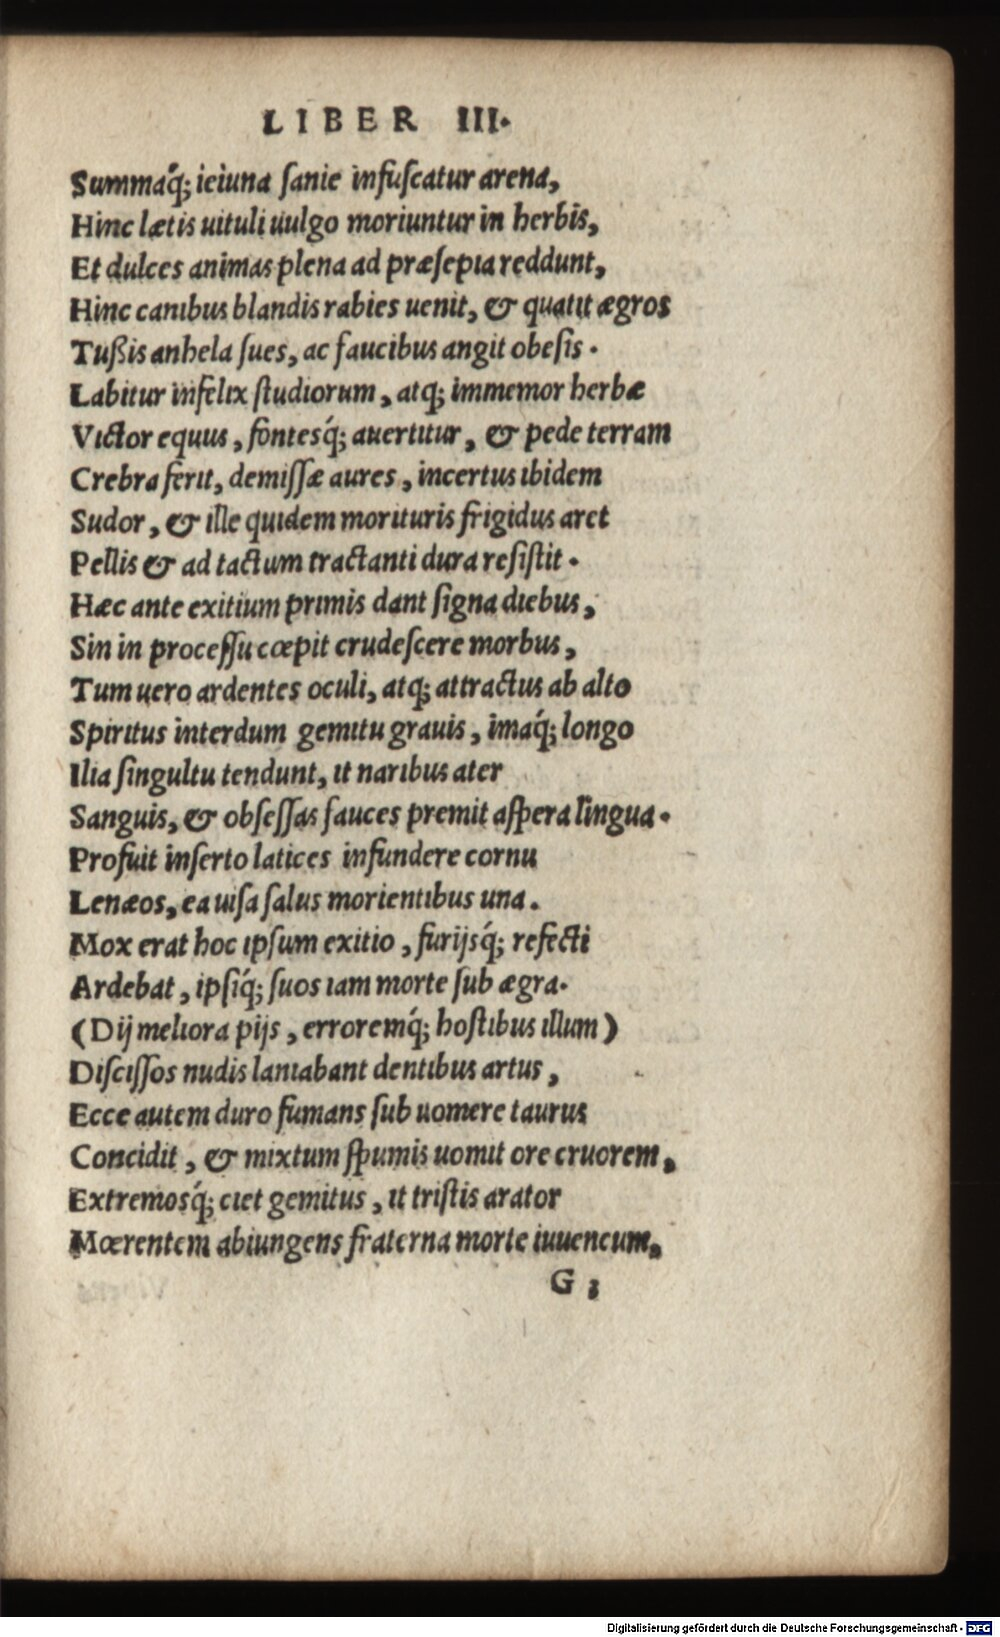 LIBER III.
Summaq́; ieiuna ſanie infuſcatur arena,
Hinc lætis uituli uulgo moriuntur in herbis,
Et dulces animas plena ad præſepia reddunt,
Hinc canibus blandis rabies uenit, & quatit ægros
Tußis anhela ſues, ac faucibus angit obeſis.
Labitur infelix ſtudiorum, atq; immemor herbæ
Victor equus, fontesq́; auertitur, & pede terram
Crebra ferit, demiſſæ aures, incertus ibidem
Sudor, & ille quidem morituris frigidus aret
Pellis & ad tactum tractanti dura reſiſtit.
Hæc ante exitium primis dant ſigna diebus,
Sin in proceſſu cœpit crudeſcere morbus,
Tum uero ardentes oculi, atq; attractus ab alto
Spiritus interdum gemitu grauis, imaq́; longo
Ilia ſingultu tendunt, it naribus ater
Sanguis, & obſeſſas fauces premit aſpera lingua.
Profuit inſerto latices infundere cornu
Lenæos, ea uiſa ſalus morientibus una.
Mox erat hoc ipſum exitio, furijsq́; refecti
Ardebat, ipſiq́; ſuos iam morte ſub ægra.
(Dij meliora pijs, erroremq́; hoſtibus illum)
Diſciſſos nudis laniabant dentibus artus,
Ecce autem duro fumans ſub uomere taurus
Concidit, & mixtum ſpumis uomit ore cruorem,
Extremosq́; ciet gemitus, it triſtis arator
Mœrentem abiungens fraterna morte iuuencum,
G ;
Digitalisierung gefördert durch die Deutsche Forschungsgemeinschaft - DFG